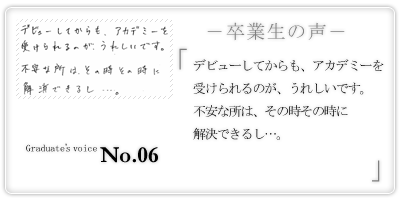 デビューしてからも、アカデミーを
受けられるのが、うれしいです。
不安な所は、その時その時に
解決できるし…。
Graduate's voice No.06
－卒業生の声－
「デビューしてからも、アカデミーを
受けられるのが、うれしいです。
不安な所は、その時その時に
解決できるし…。
」